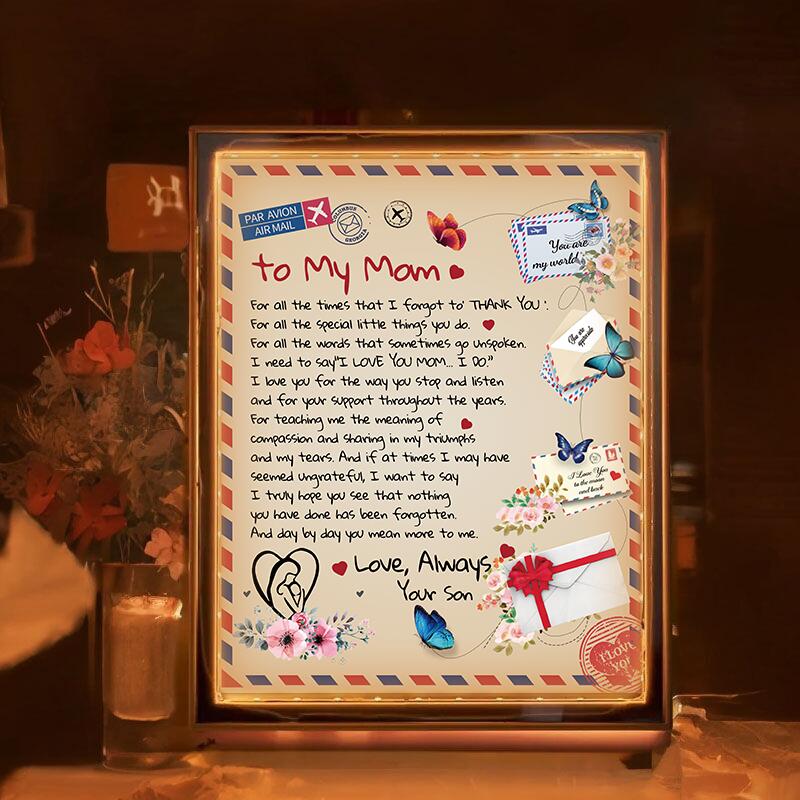 PAR AVION
AIR MAIL
COLUMBUS
GEORGIA
You are
my world
to My Mom
For all the times that I forgot to' THANK YOU '.
For all the special little things you do.
For all the words that sometimes go unspoken.
I need to say"I LOVE YOU MOM... I DO."
I love you for the way you stop and listen
and for your support throughout the years.
For teaching me the meaning of
compassion and sharing in my triumphs
and my tears. And if at times I may have
seemed ungrateful, I want to say
I truly hope you see that nothing
you have done has been forgotten.
And day by day you mean more to me.
Love, Always
Your Son
You are
I Love You
to the moon
and back
I LOVE
YOU